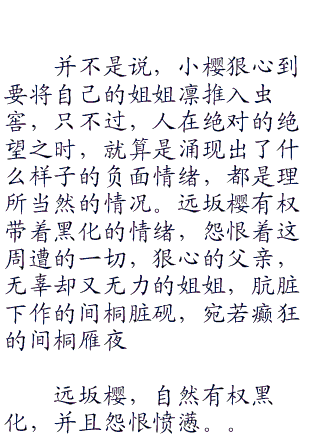 并不是说，小樱狠心到
要将自己的姐姐凛推入虫
窖，只不过，人在绝对的绝
望之时，就算是涌现出了什
么样子的负面情绪，都是理
所当然的情况。远坂樱有权
带着黑化的情绪，怨恨着这
周遭的一切，狠心的父亲，
无辜却又无力的姐姐，肮脏
下作的间桐脏砚，宛若癫狂
的间桐雁夜
远坂樱，自然有权黑
化，并且怨恨愤懑。。